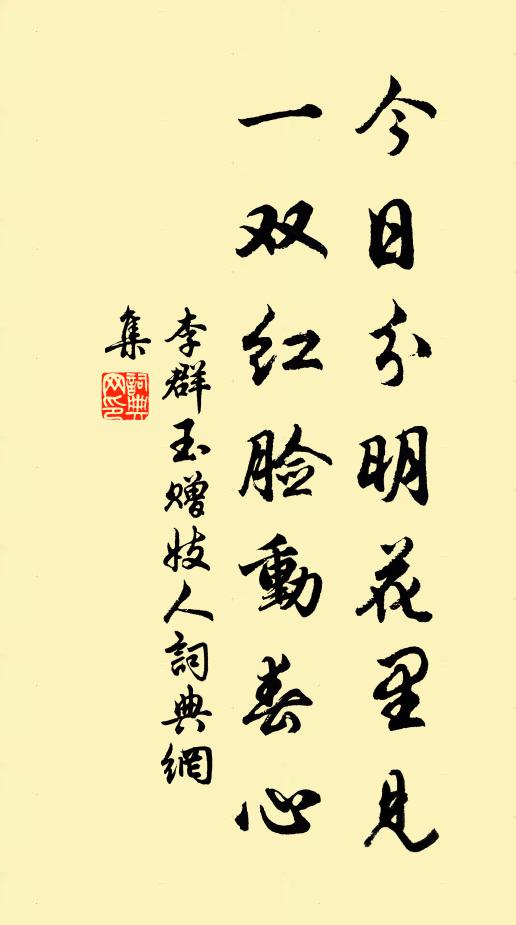 今日分明花里见
一双红脸動春心
李群玉赠妓人詞典網
集
詞典
网印